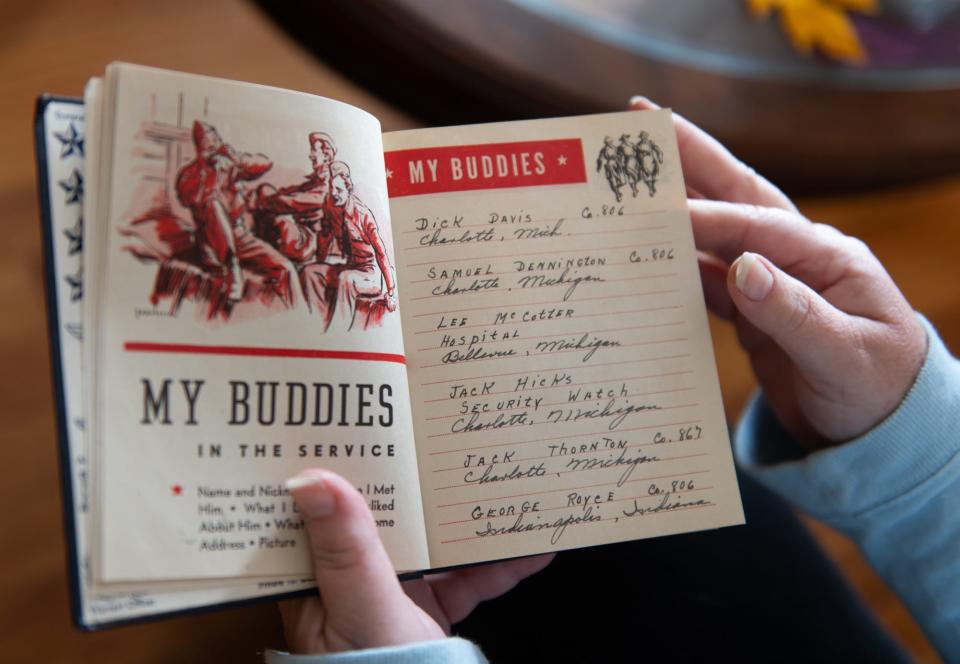 MY BUDDIES
IN THE SERVICE
★ Name and Nickn I Met
Him • What I D liked
About Him • What ome
Address • Picture
★ MY BUDDIES ★
DICK DAVIS Co. 806
Charlotte, Mich.
SAMUEL DENNINGTON Co. 806
Charlotte, Michigan
LEE McCOTTER
HOSPITAL
Bellevue, Michigan
JACK HICKS
SECURITY WATCH
Charlotte, Michigan
JACK THORNTON Co. 867
Charlotte, Michigan
GEORGE ROYCE Co. 806
Indianapolis, Indiana